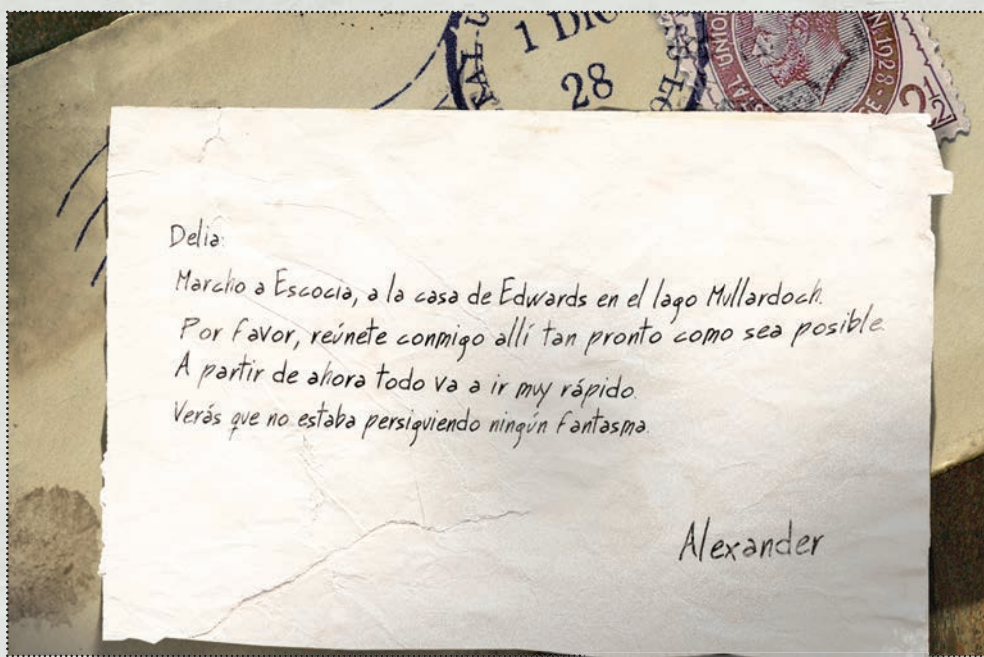 1 DIC
28
1928
2½
Delia:
Marcho a Escocia, a la casa de Edwards en el lago Mullardoch.
Por favor, reúnete conmigo allí tan pronto como sea posible.
A partir de ahora todo va a ir muy rápido.
Verás que no estaba persiguiendo ningún fantasma.
Alexander